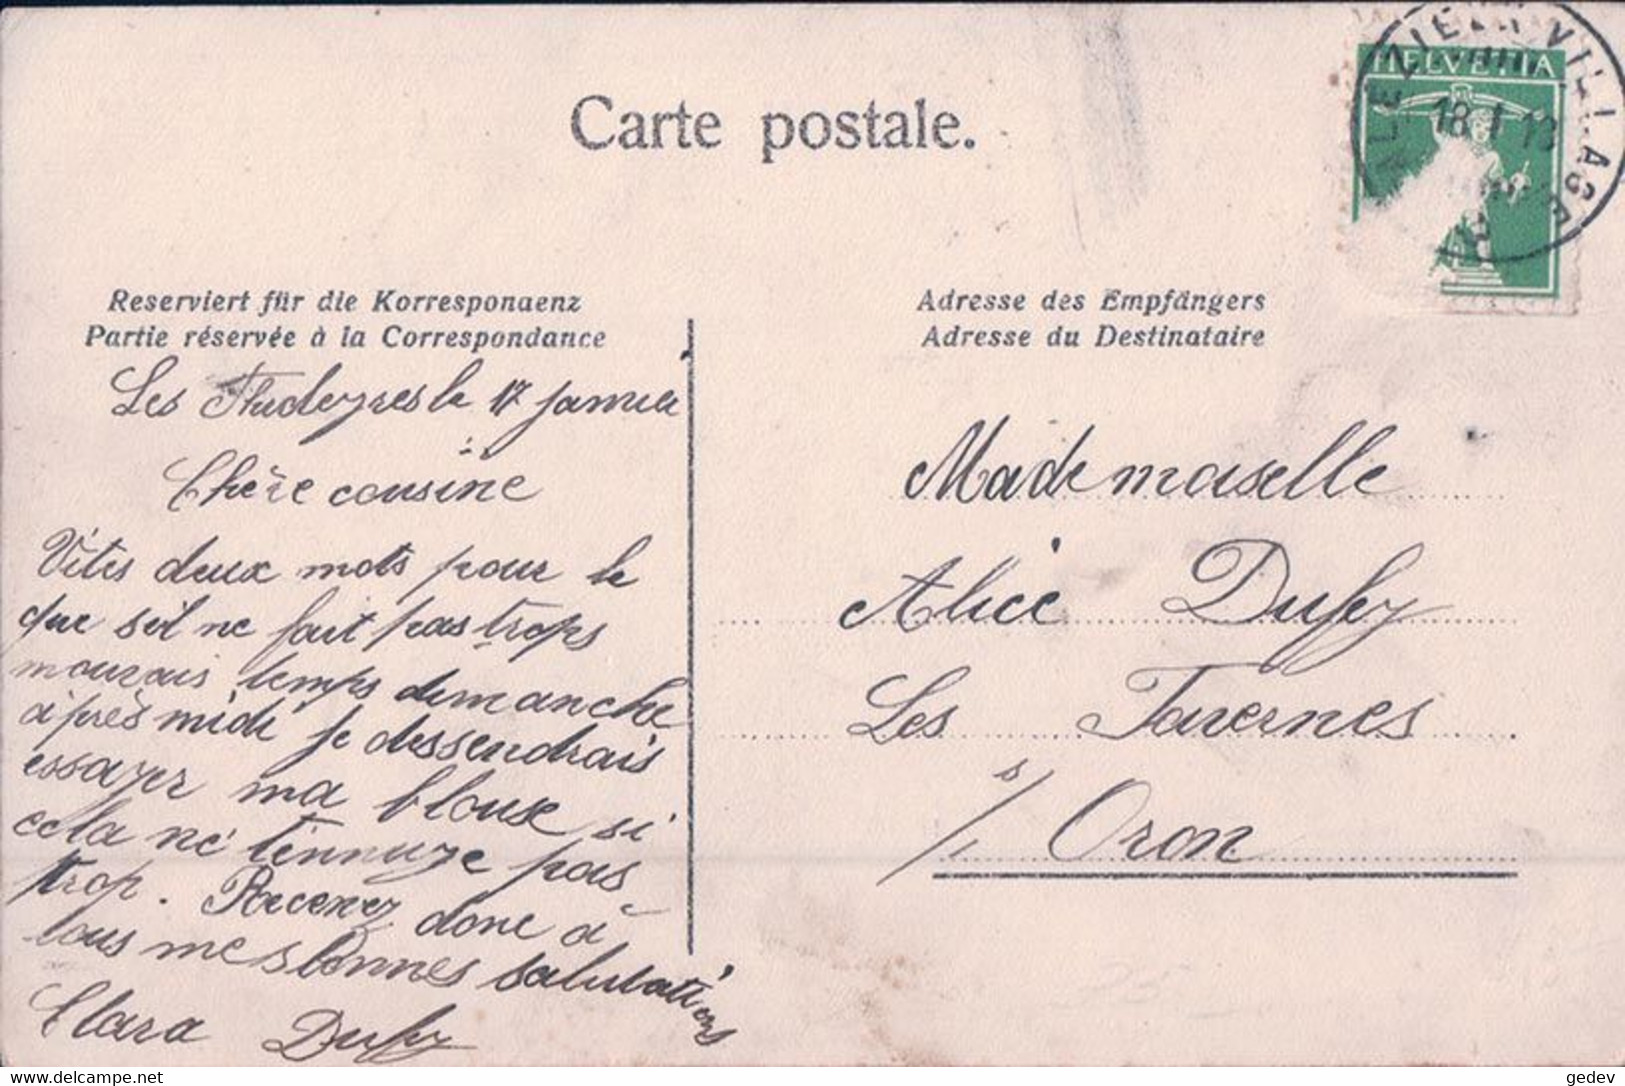 Carte postale.
HELVETIA
PALEZIEUX VILLAGE
18.I.13
Reserviert für die Korrespondenz
Partie réservée à la Correspondance
Adresse des Empfängers
Adresse du Destinataire
Les Thudeyres le 17 janvier
Chère cousine
Vites deux mots pour le
que s'il ne fait pas trops
mauvais temps demanche
après midi je dessendrais
essayer ma blouse si
cela ne t'ennuye pas
trop. Recevez donc à
tous mes bonnes salutations
Clara Dufey
Mademoiselle
Alice Dufey
Les Tavernes
s/ Oron
delcampe.net
gedev